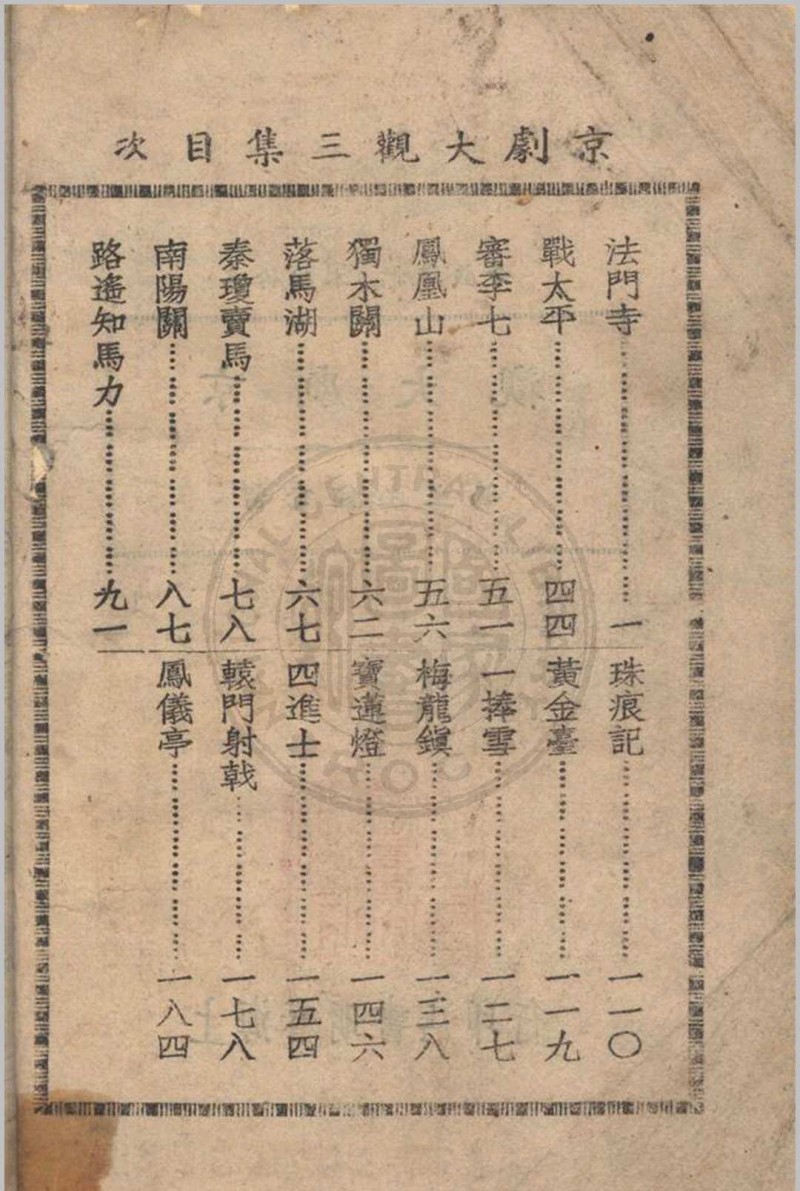 京劇大觀三集目次
法門寺……一
戰太平……四四
審李七……五一
鳳凰山……五六
獨木關……六二
落馬湖……六七
秦瓊賣馬……七八
南陽關……八七
路遙知馬力……九一
珠痕記……一一〇
黃金臺……一一九
一捧雪……一二七
梅龍鎮……一三八
寶蓮燈……一四六
四進士……一五四
轅門射戟……一七八
鳳儀亭……一八四